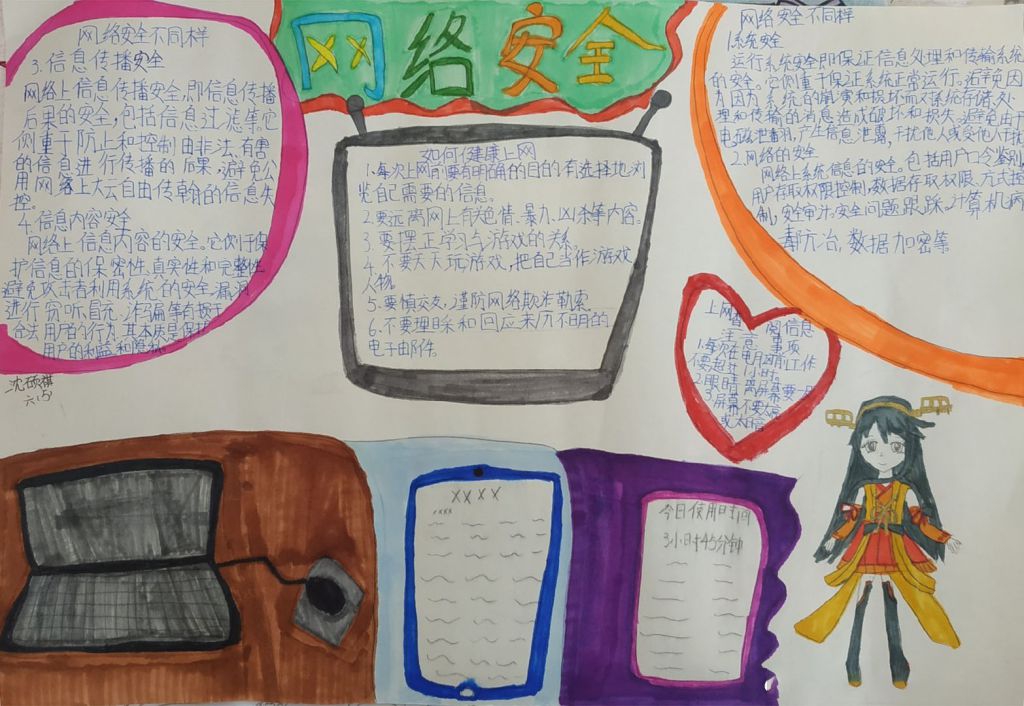 网络安全
网络安全不同样
3.信息传播安全
网络上信息传播安全,即信息传播
后果的安全,包括信息过滤等。它
侧重于防止和控制由非法、有害
的信息进行传播的后果,避免公
用网络上大云自由传翰的信息失
控。
4.信息内容安全
网络上信息内容的安全。它侧于保
护信息的保密性、真实性和完整性
避免攻击者利用系统的安全漏洞
进行窃听、冒充、诈骗等有损于
合法用户的行为。其本质是保护
用户的利益和隐私
沈硕祺
六(5)
如何健康上网
1.每次上网前要有明确的目的有选择地浏
览自己需要的信息。
2.要远离网上有关色情、暴力、凶杀等内容。
3.要摆正学习与游戏的关系。
4.不要天天玩游戏,把自己当作游戏
人物。
5.要慎交友,谨防网络欺诈勒索
6.不要理睬和回应来历不明的
电子邮件。
网络安全不同样
1.系统安全
运行系统安全即保证信息处理和传输系统
的安全。它侧重于保证系统正常运行。避免因
为因为系统的崩溃和损坏而对系统存储、处
理和传输的消息造成破坏和损失。避免由于
电磁泄翻,产生信息泄露,干扰他人或受他人干扰
2.网络的安全
网络上系统信息的安全。包括用户口令鉴别
用户存取权限控制,数据存取权限、方式控
制,安全审计。安全问题跟踪。计算机网
毒防治,数据加密等
上网 阅信息
注意事项
1.每次在电月前工作
不要超过1小时
2.眼睛离屏幕要一
3.屏幕不要太亮
或太暗
XXXX
xxxx
今日使用时间
3小时45分钟